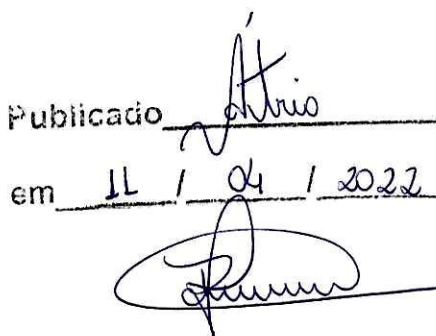 Publicado Átrio
em 11 / 04 / 2022